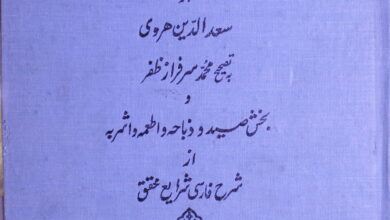 سعدالدین هروی
به تصحیح محمد سرفراز ظفر
و
بخش صید و ذباحه و اطعمه و اشربه
از
شرح فارسی شرایع محقق